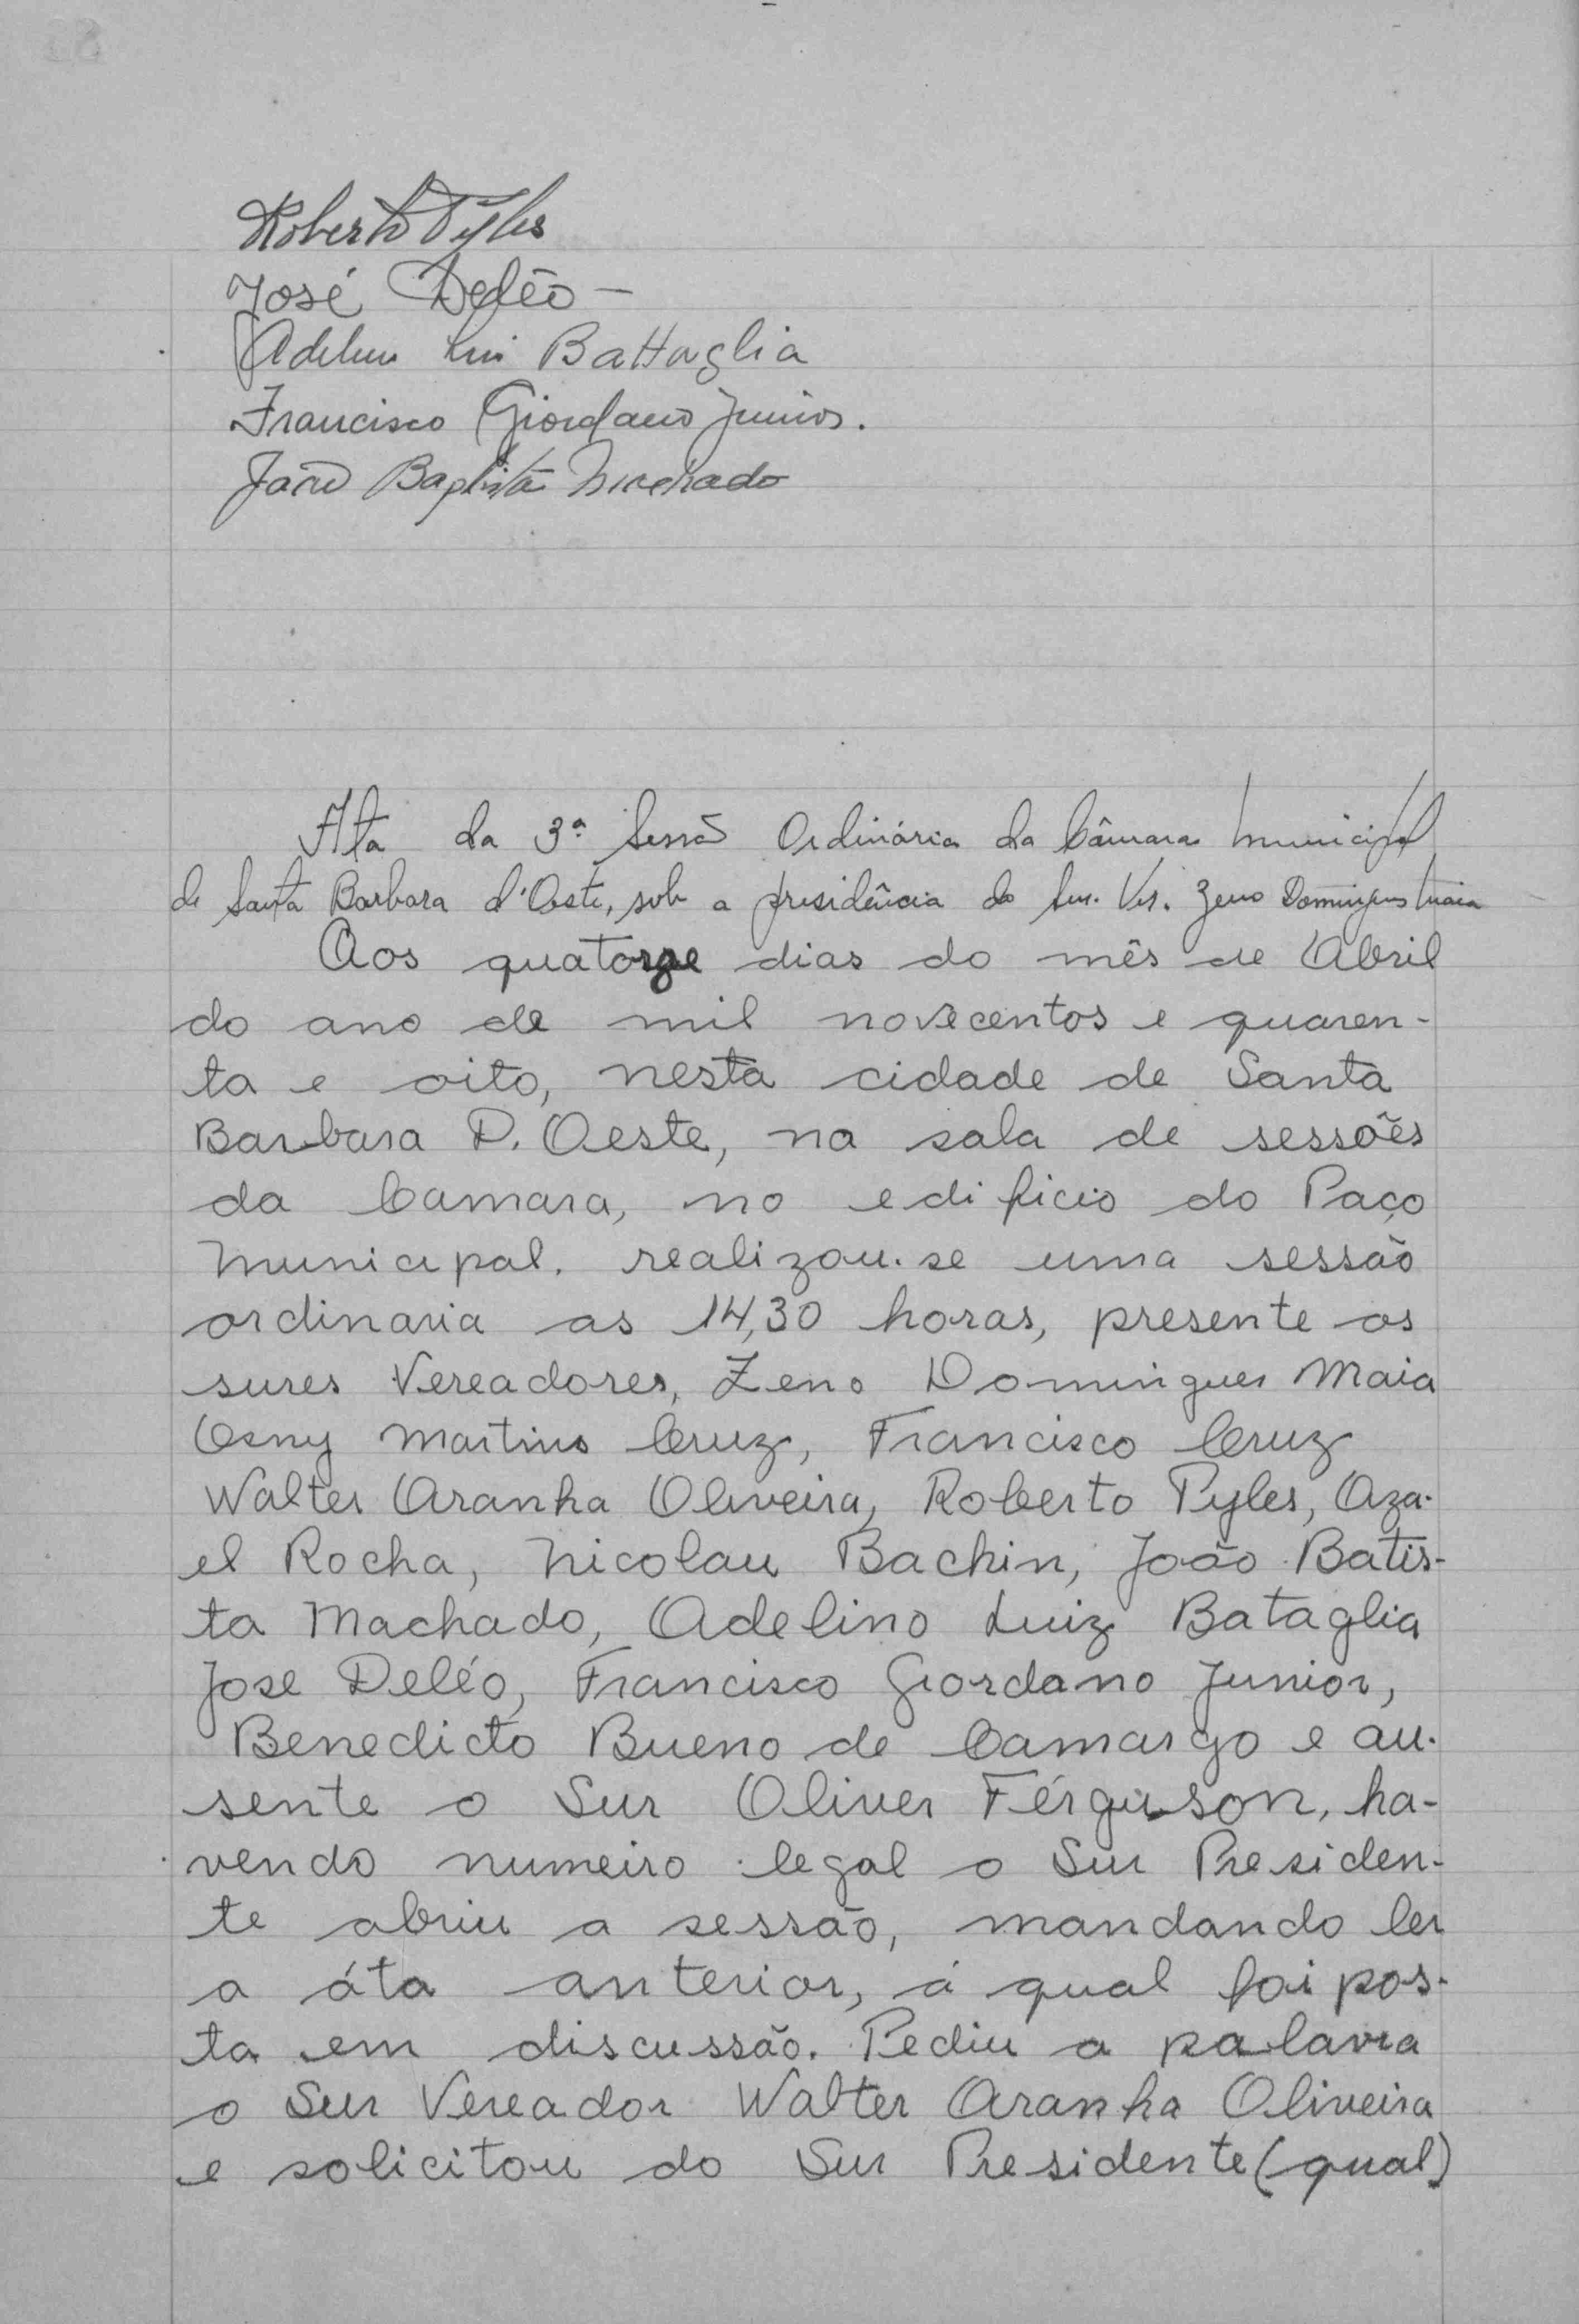 Roberto Pyles
José Deléo -
Adelino Luiz Battaglia
Francisco Giordano Junior.
João Baptista Machado
Ata da 3ª Sessão Ordinária da Câmara Municipal
de Santa Barbara d'Oeste, sob a presidência do Snr. Ver. Zeno Domingues Maia
Aos quatorze dias do mês de Abril
do ano de mil novecentos e quaren-
ta e oito, nesta cidade de Santa
Barbara D. Oeste, na sala de sessões
da Camara, no edificio do Paço
Municipal. realizou-se uma sessão
ordinaria as 14,30 horas, presente os
snres Vereadores, Zeno Domingues Maia
Osny Martins Cruz, Francisco Cruz
Walter Aranha Oliveira, Roberto Pyles, Aza-
el Rocha, Nicolau Bachin, João Batis-
ta Machado, Adelino Luiz Bataglia
Jose Deléo, Francisco Giordano Junior,
Benedicto Bueno de Camargo e au-
sente o Snr Oliver Férguson, ha-
vendo numeiro legal o Snr Presiden-
te abriu a sessão, mandando ler
a áta anterior, á qual foi pos-
ta em discussão. Pediu a palavra
o Snr Vereador Walter Aranha Oliveira
e solicitou do Snr Presidente (qual)